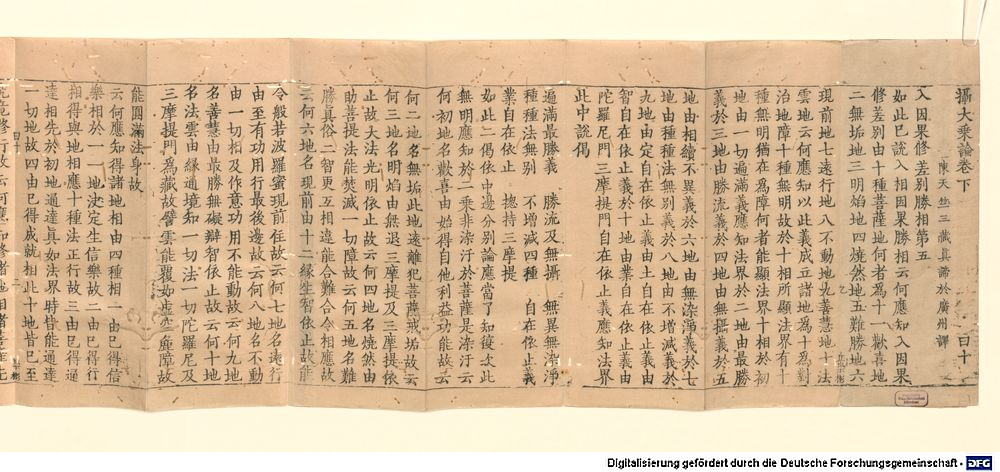 攝大乘論卷下
曰十
陳天竺三藏眞諦於廣州譯
入因果修差别勝相第五
如此已說入因果勝相云何應知入因果
修差别由十種菩薩地何者爲十一歡喜地
二無垢地三明焰地四燒然地五難勝地六
現前地七遠行地八不動地九善慧地十法
雲地云何應知以此義成立諸地爲十爲對
治地障十種無明故於十相所顯法界有十
種無明猶在爲障何者能顯法界十相於初
地由一切遍滿義應知法界於二地由最勝
義於三地由勝流義於四地由無攝義於五
地由相續不異義於六地由無染淨義於七
地由種種法無别義於八地由不增減義於
九地由定自在依止義由土自在依止義由
智自在依止義於十地由業自在依止義由
陀羅尼門三摩提門自在依止義應知法界
此中說偈
遍滿最勝義 勝流及無攝 無異無染淨
種種法無别 不增減四種 自在依止義
業自在依止 揔持三摩提
如此二偈依中邊分别論應當了知復次此
無明應知於二乘非染汙於菩薩是染汙云
何初地名歡喜由始得自他利益功能故云
何二地名無垢此地遠離犯菩薩戒垢故云
何三地名明焰由無退三摩提及三摩提依
止故大法光明依止故云何四地名燒然由
助菩提法能焚滅一切障故云何五地名難
勝眞俗二智更互相違能合難合令相應故
云何六地名現前由十二緣生智依止故能
令般若波羅蜜現前住故云何七地名遠行
由至有功用行最後邊故云何八地名不動
由一切相及作意功用不能動故云何九地
名善慧由最勝無礙辯智依止故云何十地
名法雲由緣通境知一切法一切陀羅尼及
三摩提門爲藏故譬雲能覆如虛空麤障故
能圓滿法身故
云何應知得諸地相由四種相一由已得信
樂相於一一地決定生信樂故二由已得行
相得與地相應十種法正行故三由已得通
達相先於初地通達眞如法界時皆能通達
一切地故四由已得成就相此十地皆已至
Digitalisierung gefördert durch die Deutsche Forschungsgemeinschaft - DFG